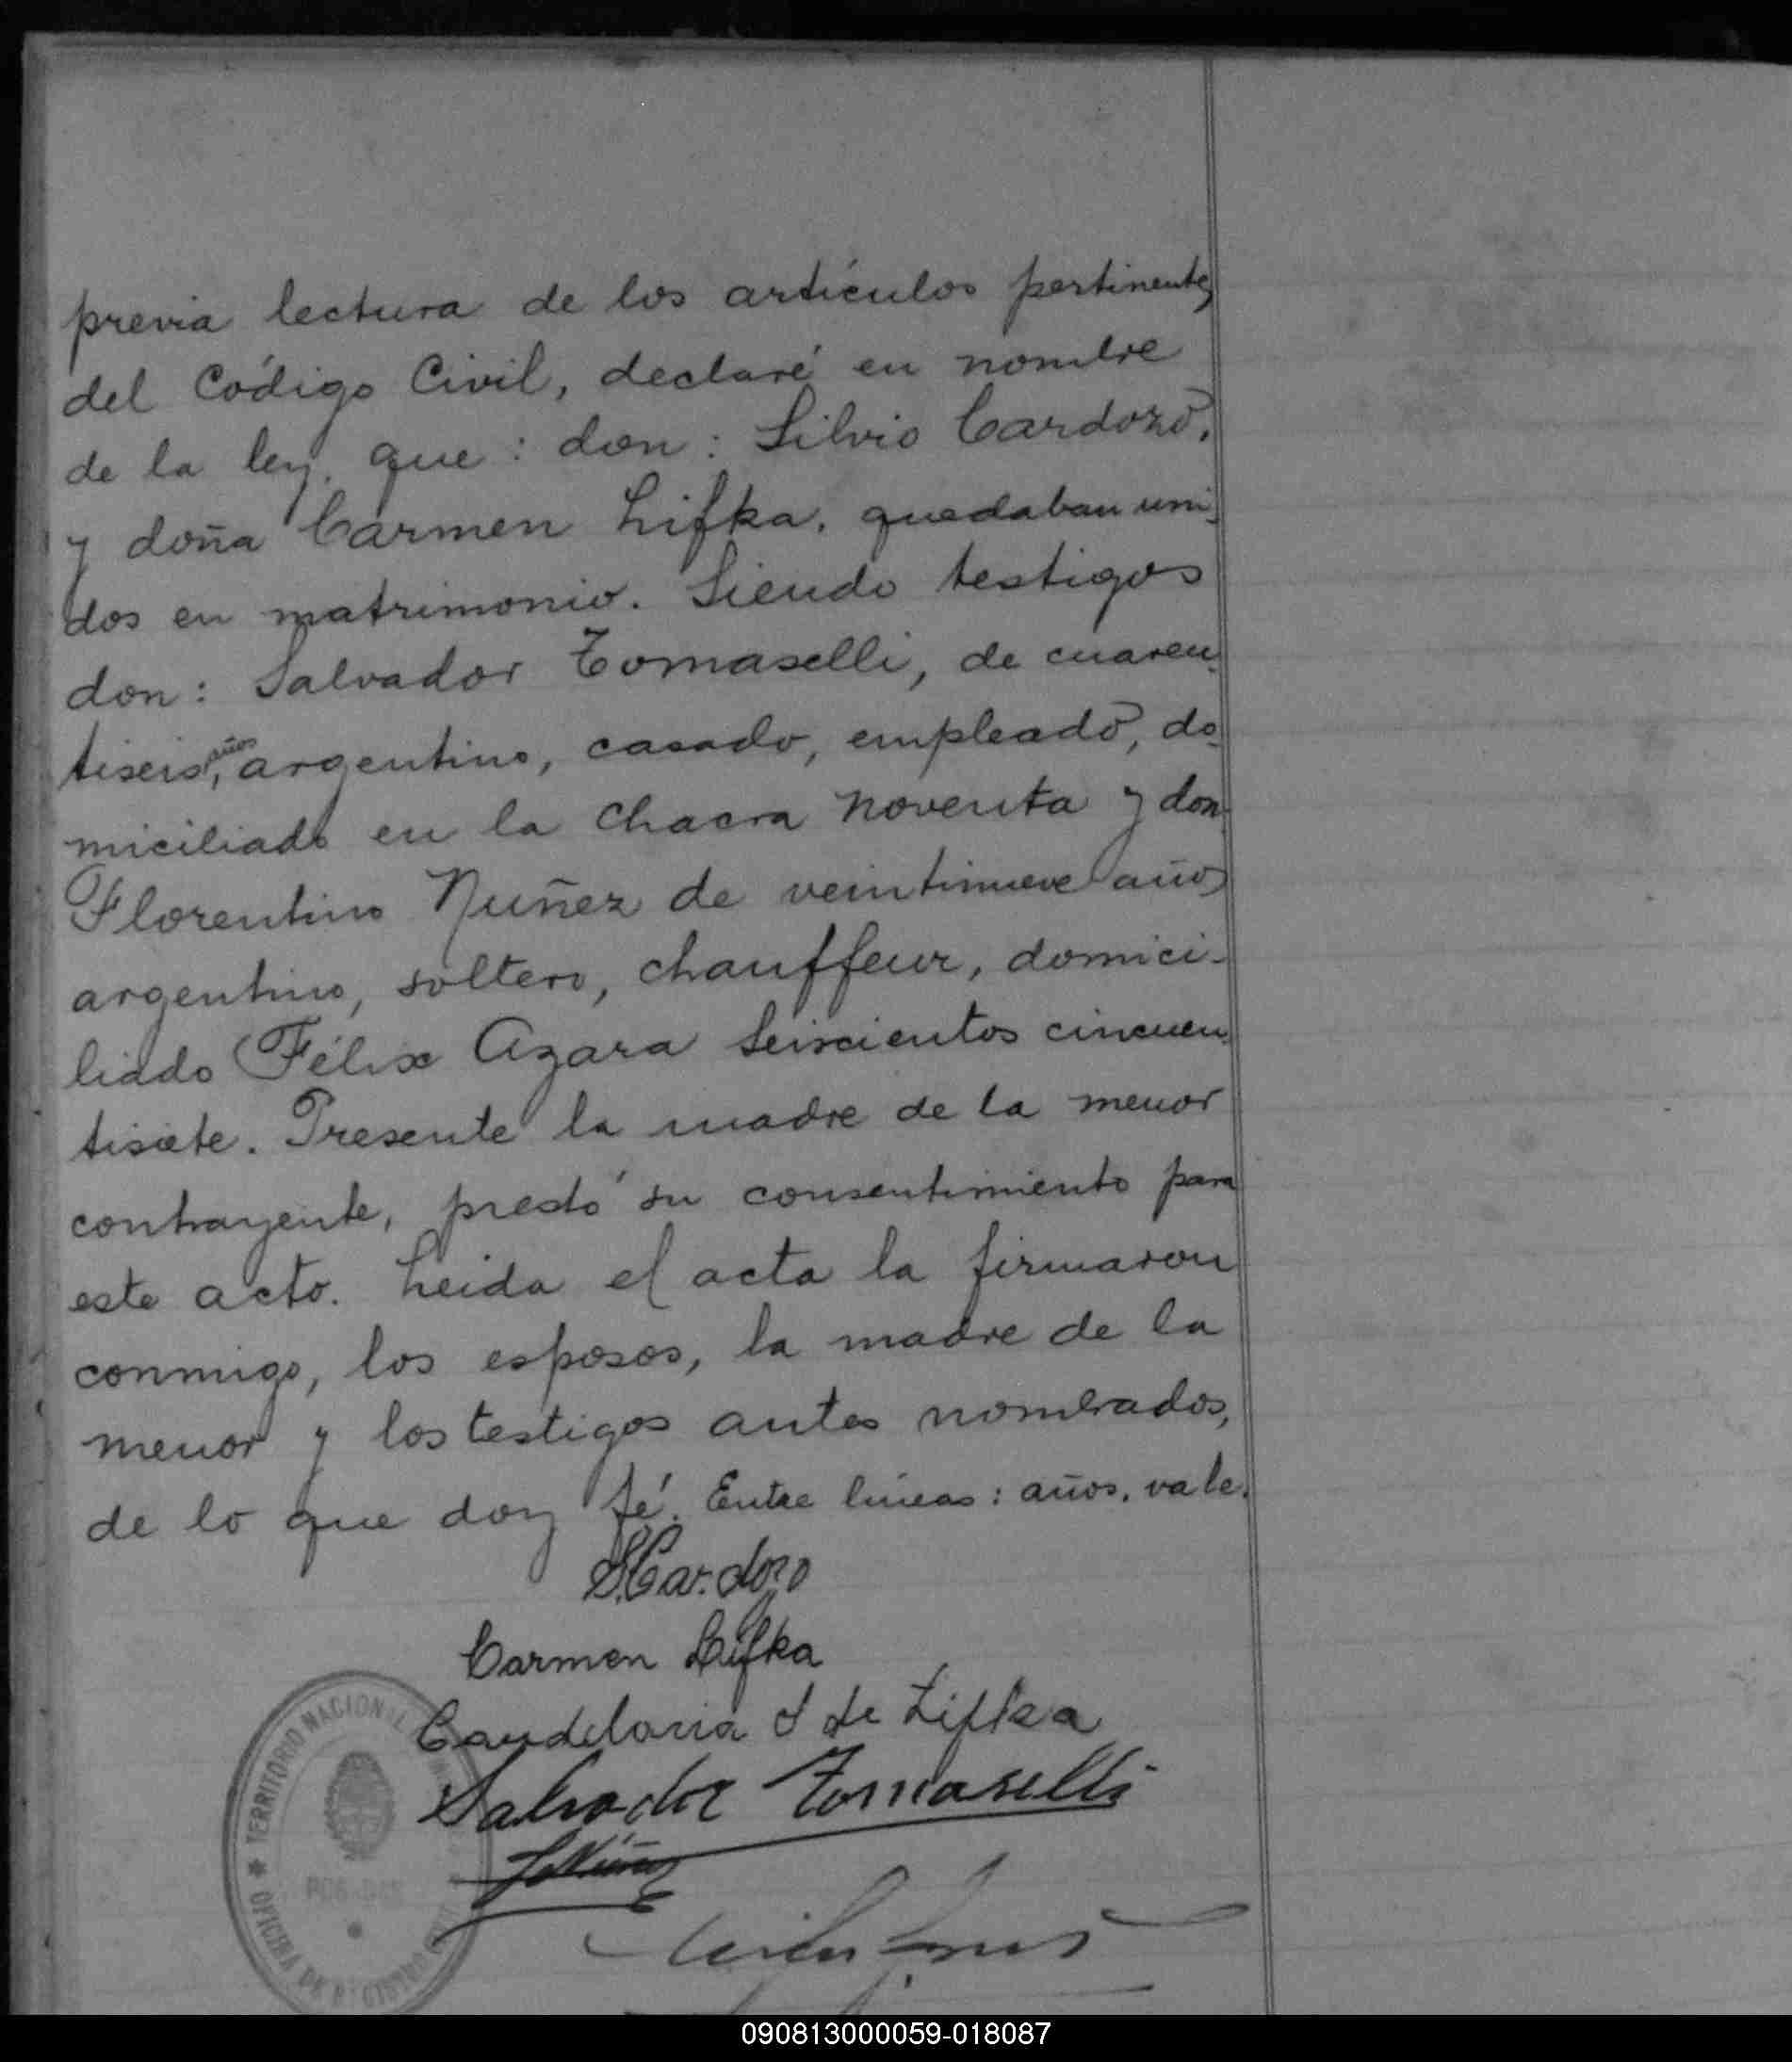 previa lectura de los artículos pertinentes
del Código Civil, declaré en nombre
de la ley, que: don: Silvio Cardozo,
y doña Carmen Lifka, quedaban uni-
dos en matrimonio. Siendo testigos
don: Salvador Tomaselli, de cuaren-
tiseis, años argentino, casado, empleado, do-
miciliado en la chacra noventa y don
Florentino Nuñez de veintinueve años
argentino, soltero, chauffeur, domici-
liado Félix Azara seiscientos cincuen-
tisiete. Presente la madre de la menor
contrayente, prestó su consentimiento para
este acto. Leida el acta la firmaron
conmigo, los esposos, la madre de la
menor y los testigos antes nombrados,
de lo que doy fé. Entre líneas: años. vale.
S. Cardozo
Carmen Lifka
Candelaria S de Lifka
Salvador Tomaselli
F Núñez
TERRITORIO NACIONAL
POSADAS
OFICINA DE REGISTRO CIVIL
090813000059-018087